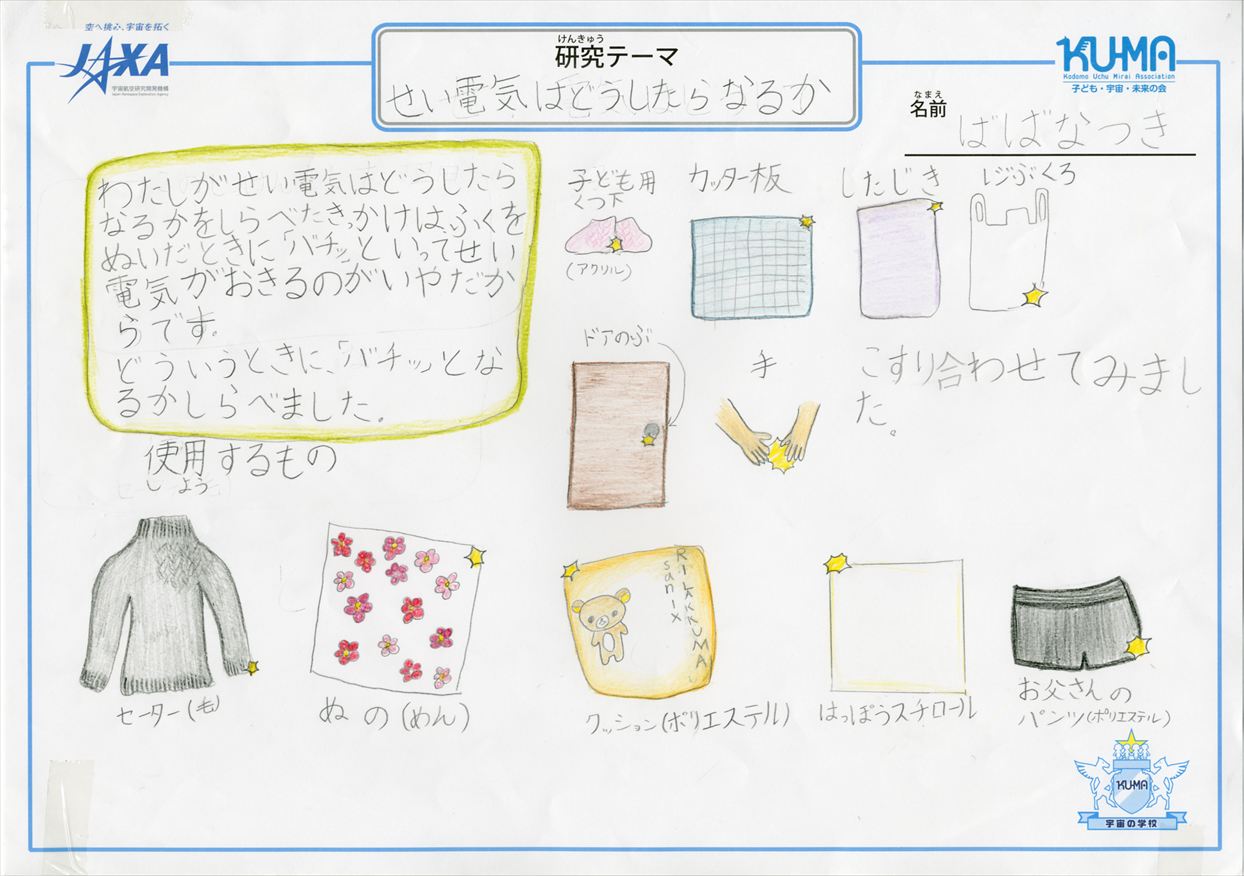 空へ挑み、宇宙を拓く
JAXA
宇宙航空研究開発機構
Japan Aerospace Exploration Agency
けんきゅう
研究テーマ
せい電気はどうしたらなるか
KU-MA
Kodomo Uchu Mirai Association
子ども・宇宙・未来の会
なまえ
名前
ばばなつき
わたしがせい電気はどうしたら
なるかをしらべたきっかけは、ふくを
ぬいだときに「バチッ」といってせい
電気がおきるのがいやだか
らです。
どういうときに、「バチッ」とな
るかしらべました。
子ども用
くつ下
(アクリル)
カッター板
したじき
レジぶくろ
ドアのぶ
手
こすり合わせてみまし
た。
使用するもの
しよう
セーター(毛)
ぬの(めん)
RILAKKUMA
sanix
クッション(ポリエステル)
はっぽうスチロール
お父さんの
パンツ(ポリエステル)
KU-MA
宇宙の学校